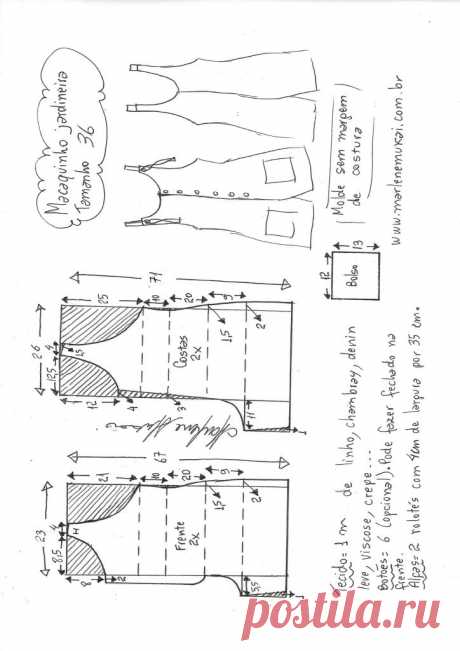 Macaquinho jardineira
Tamanho 36
Molde sem margem
de costura
www.marlenemukai.com.br
13
12
Bolso
71
25
10
20
9
26
4
1,5
12,5
12
4
3
Costas
2x
1,5
2
11
1
67
21
10
20
9
23
4
H
8,5
8
2
Frente
2x
1,5
2
5,5
1
Tecido= 1 m de linho, chambray, denin
leve, viscose, crepe...
Botões= 6 (opcional). Pode fazer fechado na
frente.
Alças= 2 rolotés com 4cm de largura por 35 cm.
postila.ru